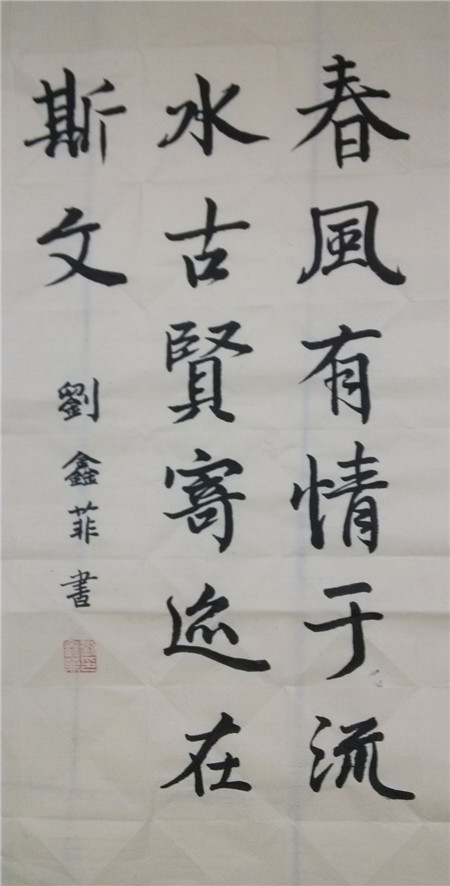 春風有情于流
水古賢寄迹在
斯文
劉鑫菲書